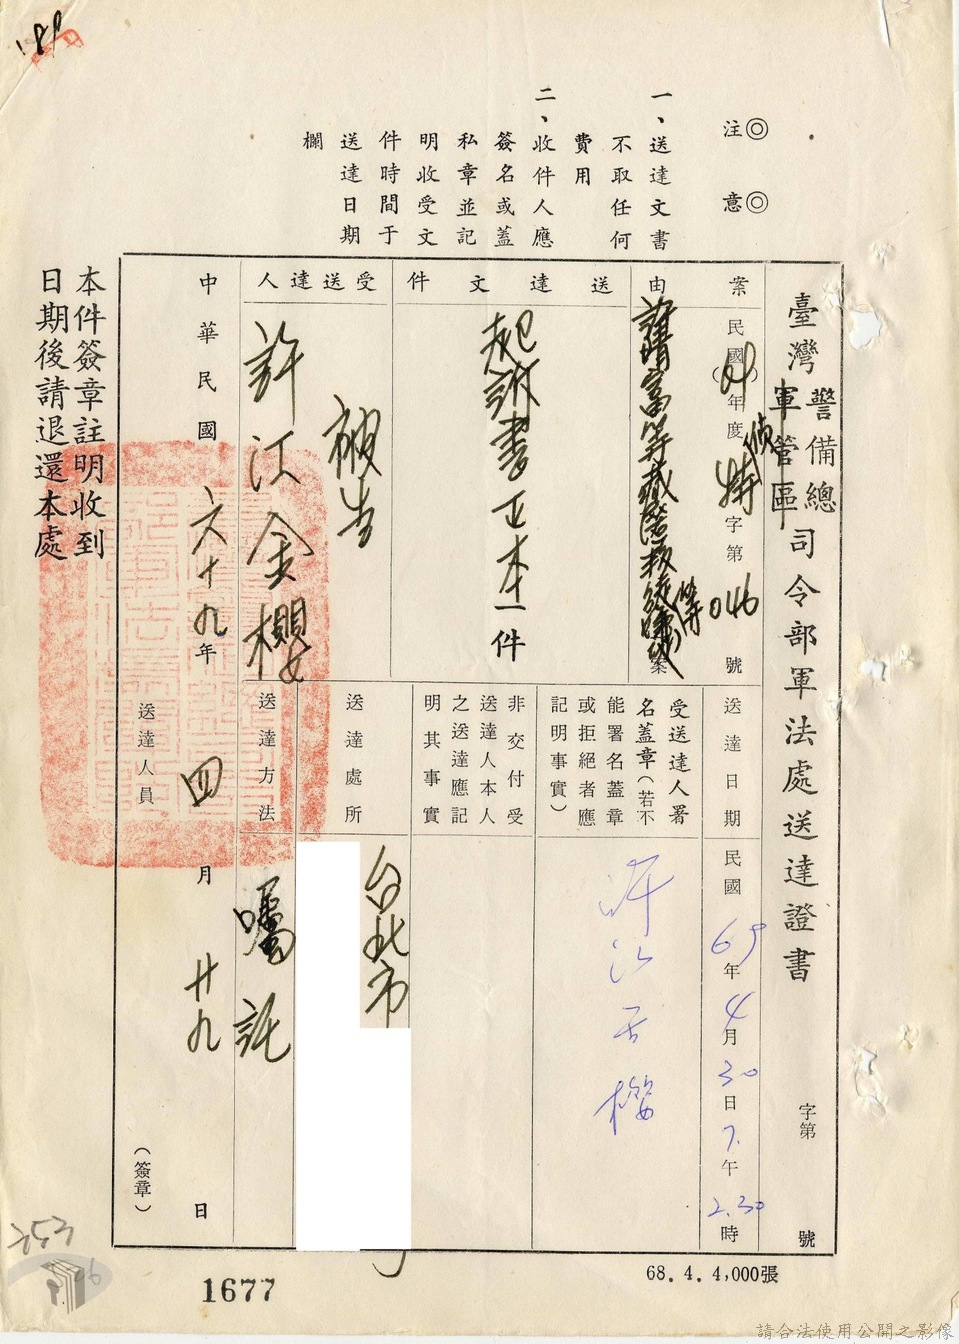 189
◎注　意◎
一、送達文書
不取任何
費用
二、收件人應
簽名或蓋
私章並記
明收受文
件時間于
送達日期
欄
臺灣警備總軍管區司令部軍法處送達證書
字第　號
案　由
民國(69)年度偵特字第046號
許晴富等
案
送達文件
起訴書正本一件
受送達人
被告
許江金櫻
送達日期
民國69年4月30日下午2.30時
受送達人署名蓋章(若不能署名蓋章或拒絕者應記明事實)
許江金櫻
非交付受送達人本人之送達應記明其事實
送達處所
台北市
送達方法
囑託
中華民國六十九年四月廿九日
送達人員
(簽章)
本件簽章註明收到
日期後請退還本處
253
1677
68.4.4,000張
請合法使用公開之影像